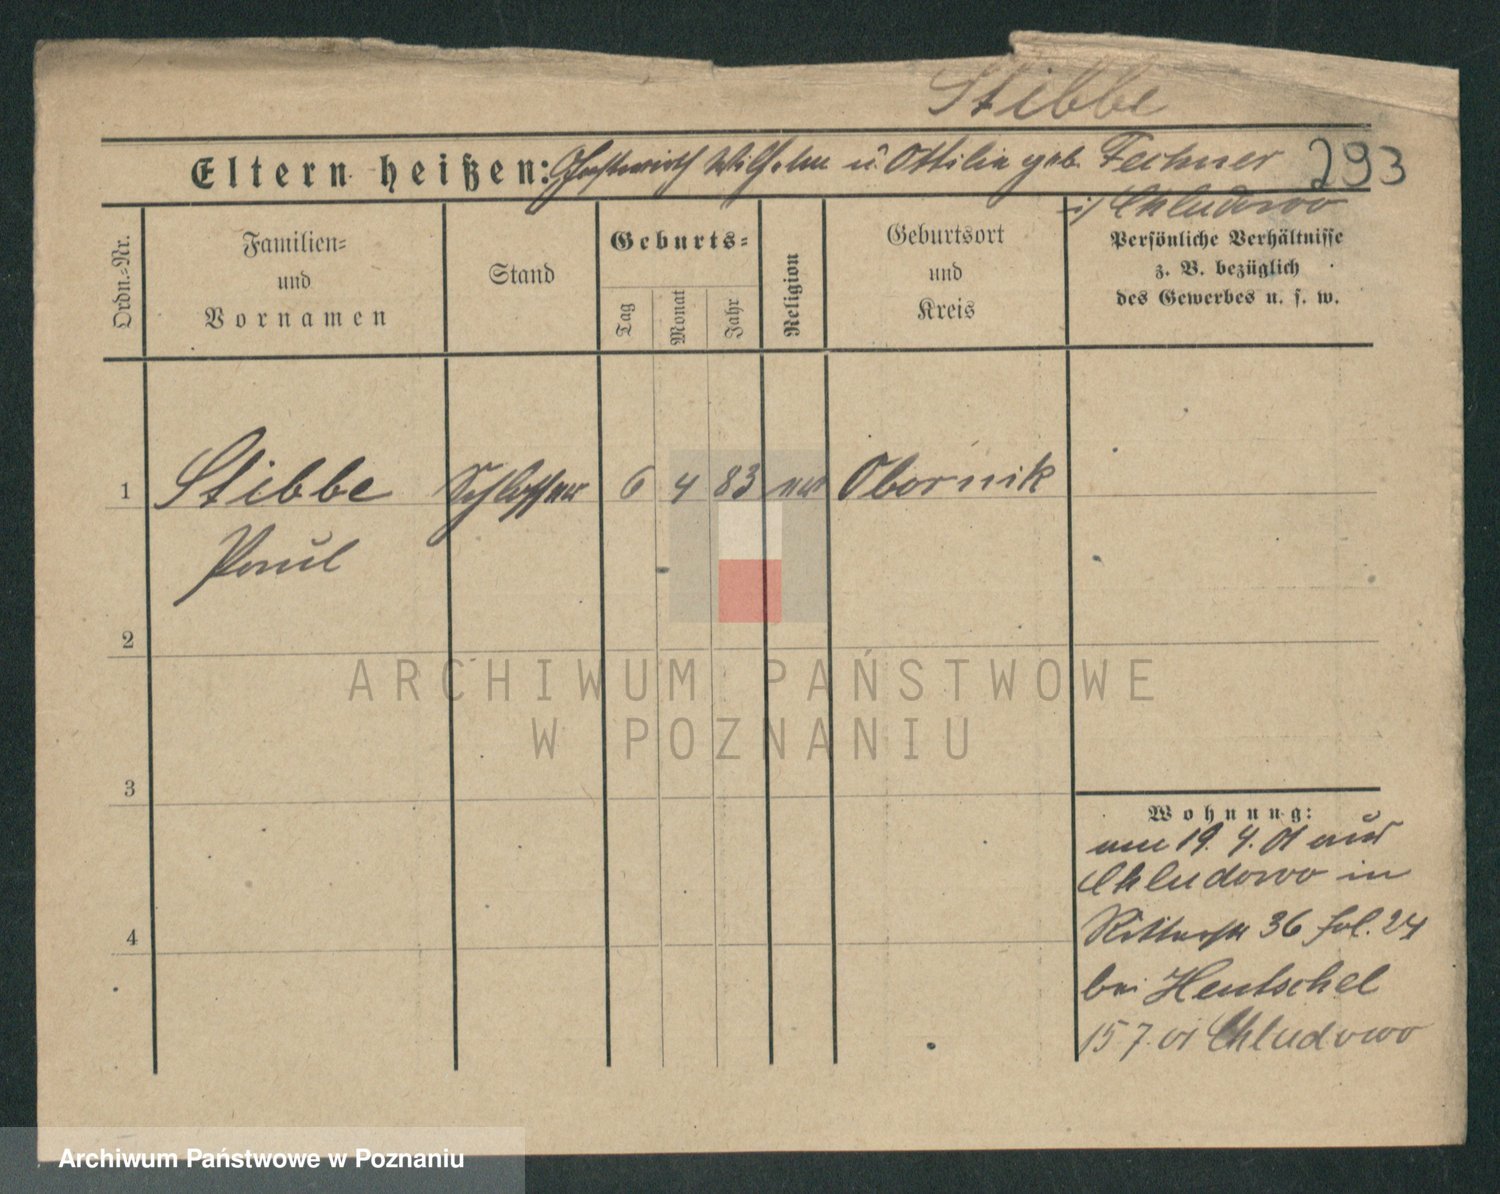 Stibbe
Eltern heißen: Gastwirth Wilhelm u. Ottilie geb. Fechner 293
i/ Chludowo
Ordn.=Nr.
Familien=
und
Vornamen
Stand
Geburts=
Tag
Monat
Jahr
Religion
Geburtsort
und
Kreis
Persönliche Verhältnisse
z. B. bezüglich
des Gewerbes u. s. w.
1 Stibbe Schlosser 6 4 83 ev Obornik
Paul
2
3
4
Wohnung:
am 19. 4. 01 aus
Chludowo in
Ritterstr 36 fol. 24
bei Hentschel
15 7. 01 Chludowo
ARCHIWUM PAŃSTWOWE
W POZNANIU
Archiwum Państwowe w Poznaniu